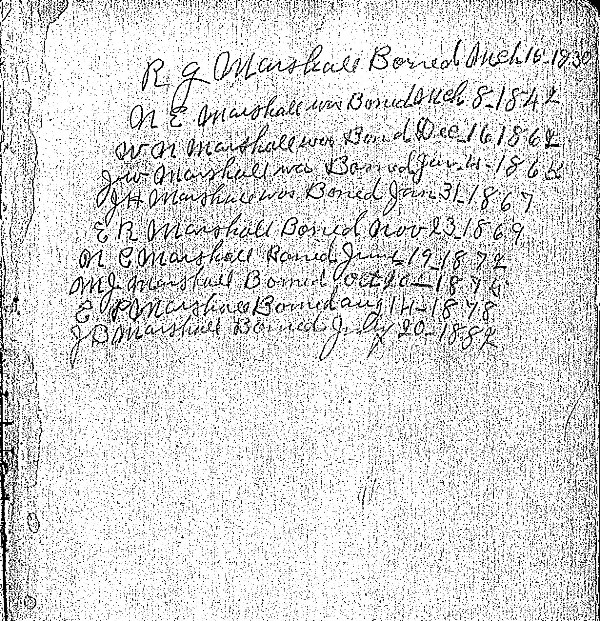 R G Marshall Borned Mch 16-1830
N E Marshall was Borned Mch 8-1842
W N Marshall was Bornd Dec 16 1862
J W Marshall was Borned Jan 4-186
J H Marshall was Borned Jan 31-1867
E R Marshall Borned Nov 23-1869
N C Marshall Borned June 19-1872
M J Marshall Borned Oct 20-1874
E P Marshall Borned aug 14-1878
J B Marshall Borned July 20-1882